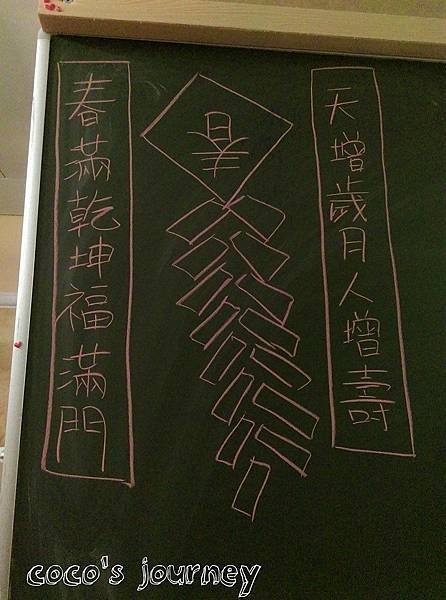 天增歲月人增壽
春
春滿乾坤福滿門
coco's journey